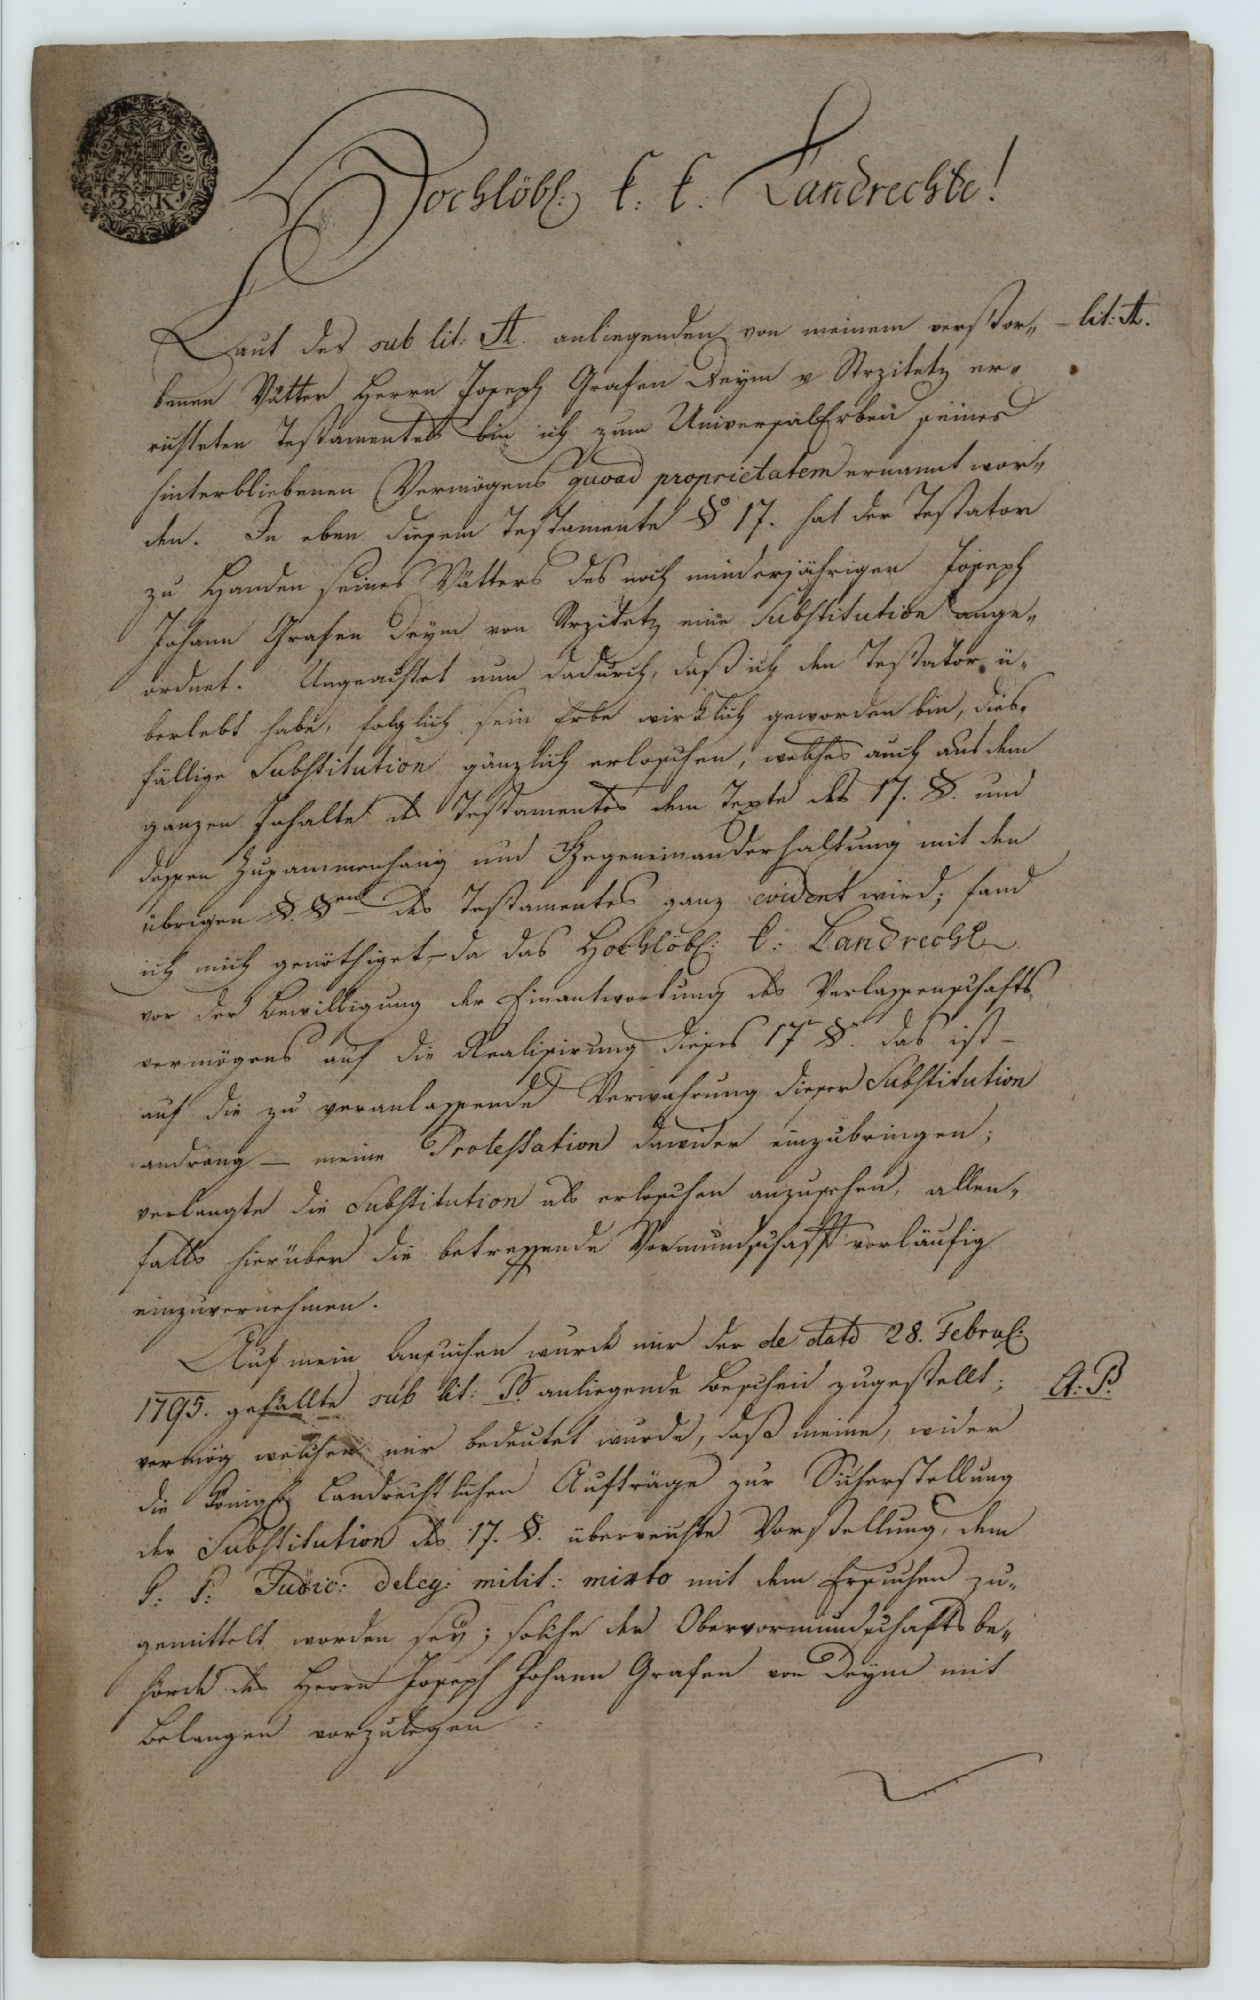 Hochlöbl: k: k: Landrechte!
Laut des sub lit: A. anliegenden von meinem verstor„ – lit: A.
benen Vätter Herrn Joseph Grafen Deÿm v Strzitetz er„
richteten Testamentes bin ich zum UniversalErben seines
hinterbliebenen Vermögens quoad proprietatem ernannt wor„
den. In eben diesem Testamente §º 17. hat der Testator
zu Handen seines Vätters des noch minderjährigen Joseph
Johann Grafen Deÿm von Strzitetz eine Substitution ange„
ordnet. Ungeachtet nun dadurch, daß ich den Testator ü„
berlebt habe, folglich sein Erbe wirklich geworden bin, dies„
fällige Substitution gänzlich erloschen, welches auch aus dem
ganzen Inhalte des Testamentes dem Texte des 17. §. und
dessen Zusammenhang und Gegeneinanderhaltung mit den
übrigen §. §en des Testamentes ganz evident wird; fand
ich mich genöthiget – da das Hochlöbl: k: Landrecht
vor der Bewilligung der Einantwortung des Verlassenschafts„
vermögens auf die Realisirung dieses 17r §. das ist –
auf die zu veranlassende Verwahrung dieser Substitution
andrang – meine Protestation dawider einzubringen;
verlangte die Substitution als erloschen anzusehen, allen„
falls hierüber die betreffende Vormundschafft vorläufig
einzuvernehmen.
Auf mein Ansuchen wurde mir der de dato 28. Febru:
1795. gefällte sub lit: B. anliegende Bescheid zugestellt; A: B.
vermög welchen mir bedeutet wurde, daß meine, wider
die königl: Landrechtlichen Aufträge zur Sicherstellung
der Substitution des 17. §. überreichte Vorstellung, dem
Judic: deleg: milit: mixto mit dem Ersuchen zu„
gemittelt worden seÿ; solche der Obervormundschafts be„
hörde des Herrn Joseph Johann Grafen von Deÿm mit
Belangen vorzulegen